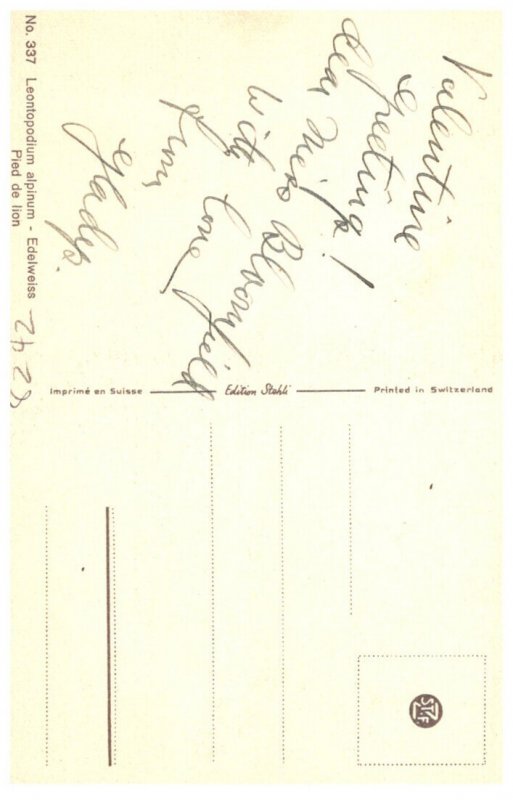 No. 337 Leontopodium alpinum - Edelweiss
Pied de lion
Valentine
Greetings!
dear Miss Bloomfield
with love
from
Gladys.
Imprimé en Suisse
Edition Stehli
Printed in Switzerland